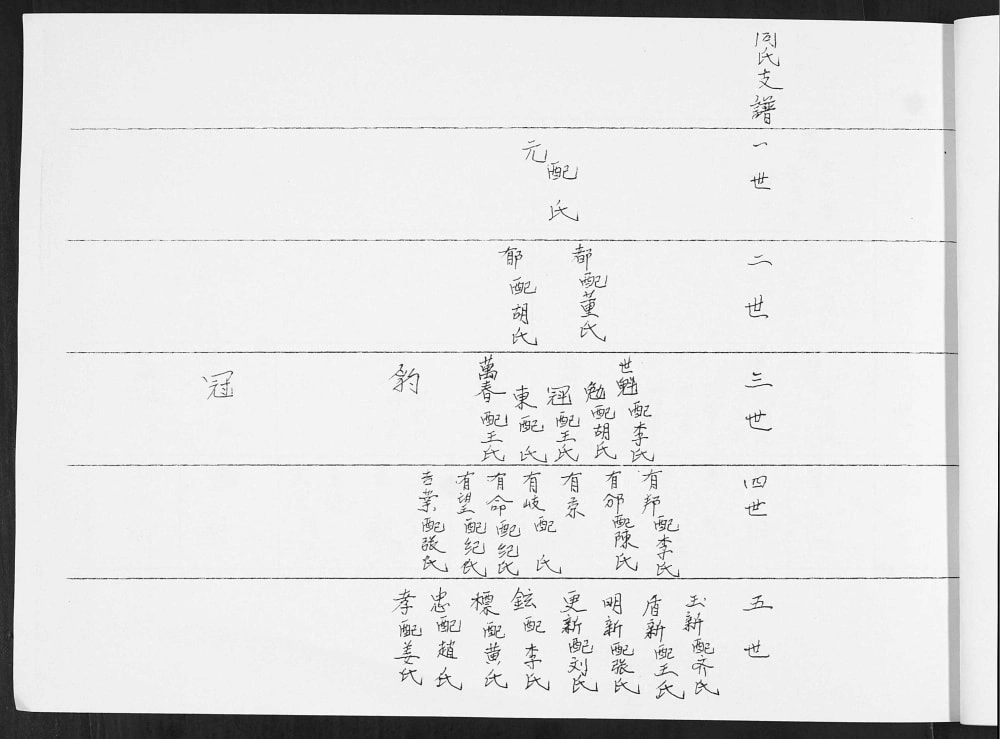 周氏支譜
一世
元 配 氏
二世
都 配董氏
郁 配胡氏
三世
世魁 配李氏
勉 配胡氏
冠 配王氏
東 配 氏
萬春 配王氏
豹
冠
四世
有邦 配李氏
有邠 配陳氏
有京
有岐 配 氏
有命 配紀氏
有望 配紀氏
配張氏
五世
玉新 配齐氏
盾新 配王氏
明新 配張氏
更新 配刘氏
鉉 配李氏
標 配黄氏
忠 配趙氏
孝 配姜氏